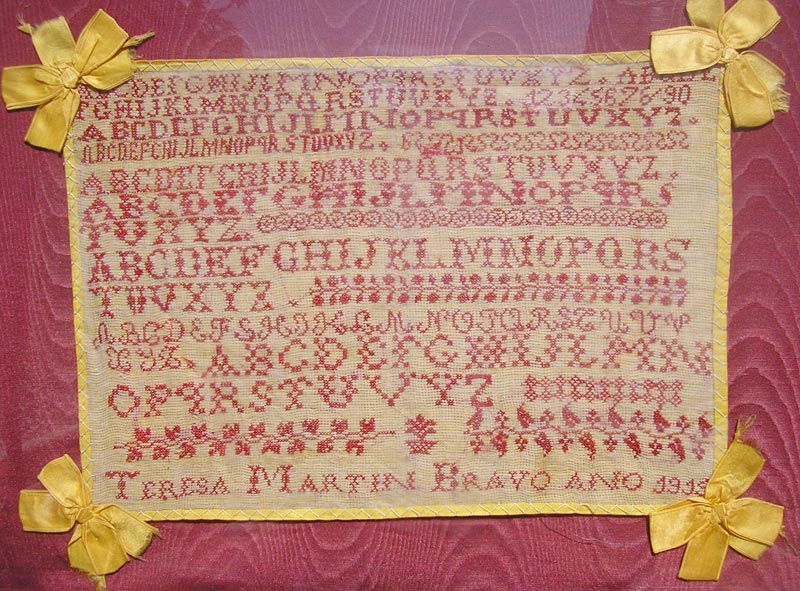 ABCDEFGHIJLMNOPQRSTUVXYZ. ABCDE
FGHIJKLMNOPQRSTUVXYZ. 1234567890
ABCDEFGHIJLMNOPqRSTUVXYZ.
ABCDEFGHIJLMNOPqRSTUVXYZ.
ABCDEFGHIJLMNOPQRSTUVXYZ.
ABCDEFGHIJLMNOPqRS
TVXYZ.
ABCDEFGHIJKLMNOPQRS
TUVXYZ.
ABCDEFGHIJ
ABCDEFGHIJLMN
OPqRSTUVYZ
TERESA MARTIN BRAVO AÑO